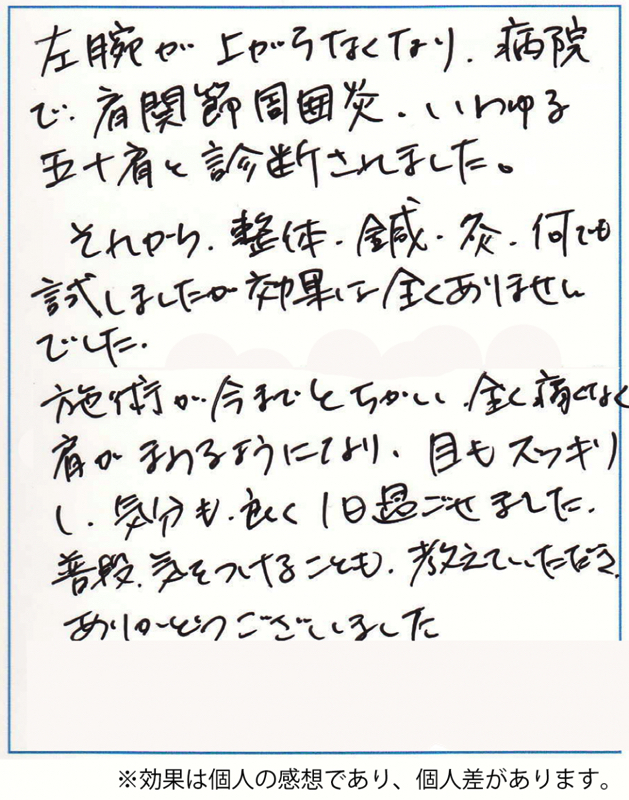 左腕が上がらなくなり、病院
で、肩関節周囲炎、いわゆる
五十肩と診断されました。
それから、整体、鍼、灸、何でも
試しましたが効果は全くありません
でした。
施術が今までとちがい、全く痛くなく
肩がまわるようになり、目もスッキリ
し、気分も、良く1日過ごせました。
普段、気をつけることも、教えていただき、
ありがとうございました
※効果は個人の感想であり、個人差があります。